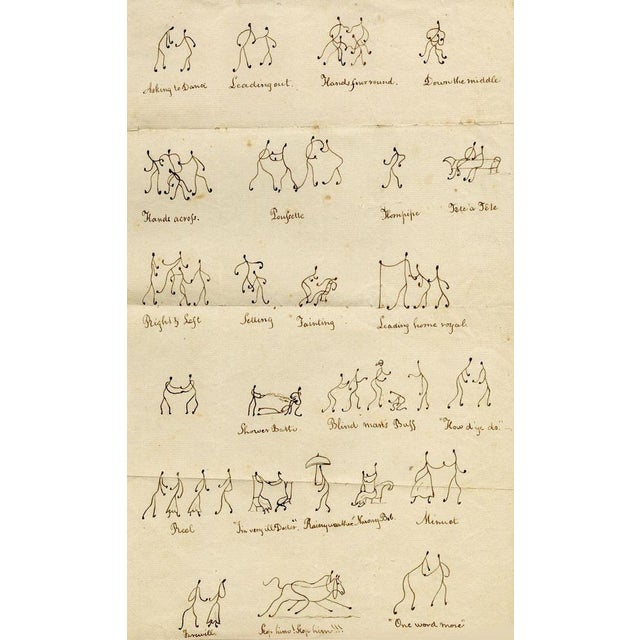 Asking to Dance
Leading out.
Hands four round.
Down the middle
Hands across.
Poussette
Hornpipe
Tete a Tête
Right & Left
Setting
Fainting
Leading home royal.
Shower Bath
Blind man's Buff
"How d'ye do."
Reel
"I'm very ill Doctor".
Rainy weather
Minuet
Farewell
Stop him! Stop him!!!
"One word more"